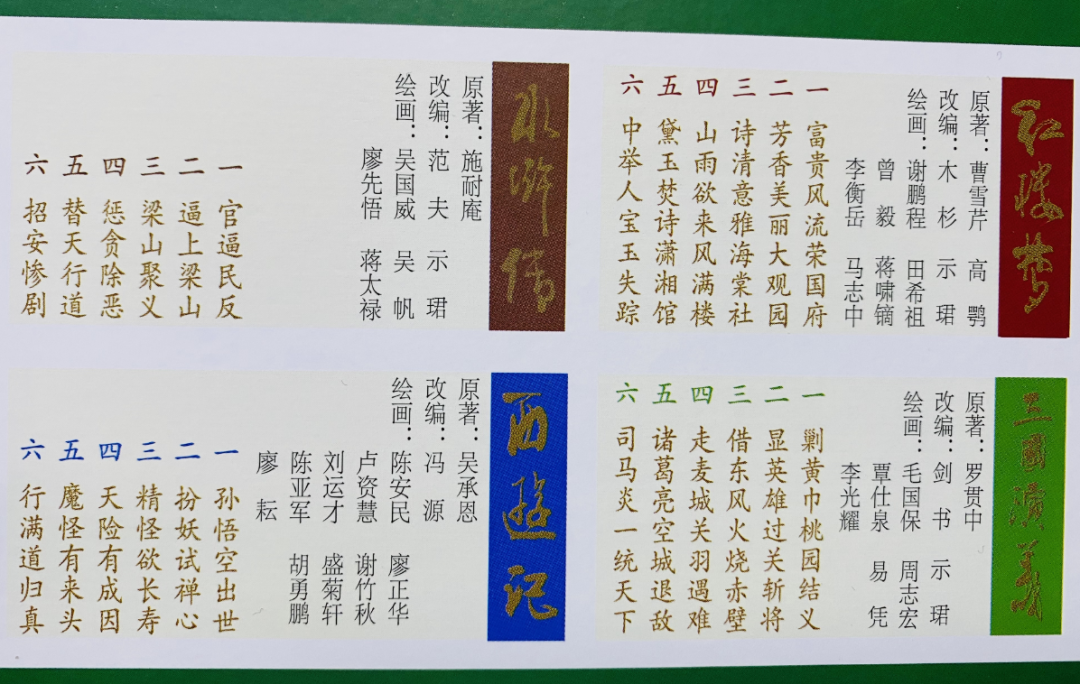 红楼梦
原著：曹雪芹 高 鹗
改编：木 杉 示 珺
绘画：谢鹏程 田希祖
曾 毅 蒋啸镝
李衡岳 马志中
一 富贵风流荣国府
二 芳香美丽大观园
三 诗清意雅海棠社
四 山雨欲来风满楼
五 黛玉焚诗潇湘馆
六 中举人宝玉失踪
水浒传
原著：施耐庵
改编：范 夫 示 珺
绘画：吴国威 吴 帆
廖先悟 蒋太禄
一 官逼民反
二 逼上梁山
三 梁山聚义
四 惩贪除恶
五 替天行道
六 招安惨剧
三國演義
原著：罗贯中
改编：剑 书 示 珺
绘画：毛国保 周志宏
覃仕泉 易 凭
李光耀
一 剿黄巾桃园结义
二 显英雄过关斩将
三 借东风火烧赤壁
四 走麦城关羽遇难
五 诸葛亮空城退敌
六 司马炎一统天下
西遊记
原著：吴承恩
改编：冯 源
绘画：陈安民 廖正华
卢资慧 谢竹秋
刘运才 盛菊轩
陈亚军 胡勇鹏
廖 耘
一 孙悟空出世
二 扮妖试禅心
三 精怪欲长寿
四 天险有成因
五 魔怪有来头
六 行满道归真